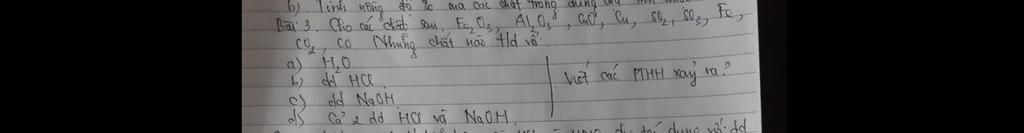 b) Tính nồng độ % của các chất trong dung
Bài 3. Cho các chất sau. Fe2O3, Al2O3, CaO, Cu, SO2, SO3, Fe,
CO2, CO. Những chất nào t/d với.
a) H2O
b) dd HCl
c) dd NaOH
d) Cả 2 dd HCl và NaOH.
Viết các PTHH xảy ra?